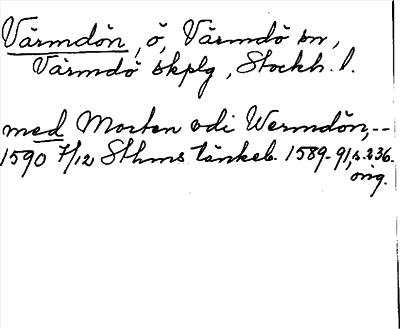 Värmdön, ö, Värmdö sn,
Värmdö skplg, Stockh. l.
med Morten vdi Wermdön, --
1590 7/12 Sthms tänkeb. 1589-91, s. 236.
orig.